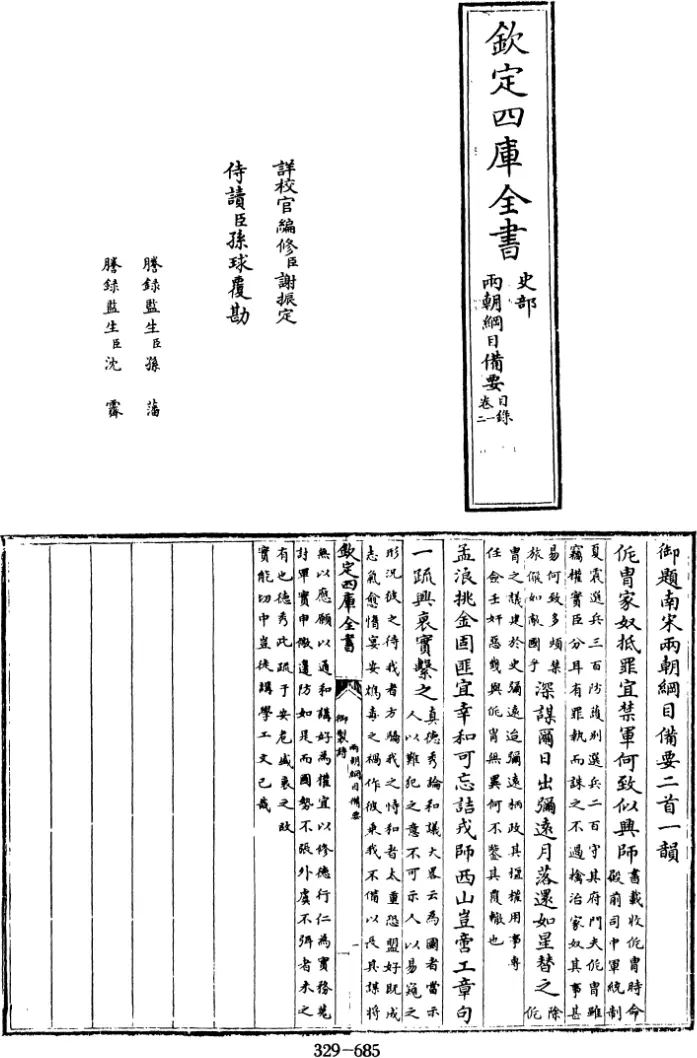 欽定四庫全書
史部
兩朝綱目備要
目錄
卷一
二
詳校官編修臣謝振定
侍讀臣孫球覆勘
謄錄監生臣孫藩
謄錄監生臣沈霖
御題南宋兩朝綱目備要二首一韻
侂胄家奴抵罪宜禁軍何致似興師書載收侂胄時命
殿前司中軍統制
夏震選兵三百防護別選兵二百守其府門夫侂胄雖
竊權實臣分耳有罪執而誅之不過擒治家奴其事甚
易何致多煩禁
旅儼如敵國乎深謀爾日出彌遠月落還如星替之除
侂
胄之議史於史彌遠迨彌遠柄政其擅權用事專
任僉壬奸惡幾與侂胄無異何不鑒其覆轍也
孟浪挑金固匪宜幸和可忘詰戎師西山豈啻工章句
一疏興衰實繫之真德秀論和議大畧云為國者當示
人以難犯之意不可示人以易窺之
形況彼之待我者方驕我之恃和者太重恐盟好既成
志氣愈惰宴安鴆毒之禍作彼乘我不備以及其謀將
欽定四庫全書
御製詩
兩朝綱目備要
一
無以應願以通和講好為權宜以修德行仁為實務
封畧實申儆邊防如是而國勢不張外虞不弭者未之
有也德秀此疏于安危盛衰之故
實能切中豈徒講學工文已哉
329-685